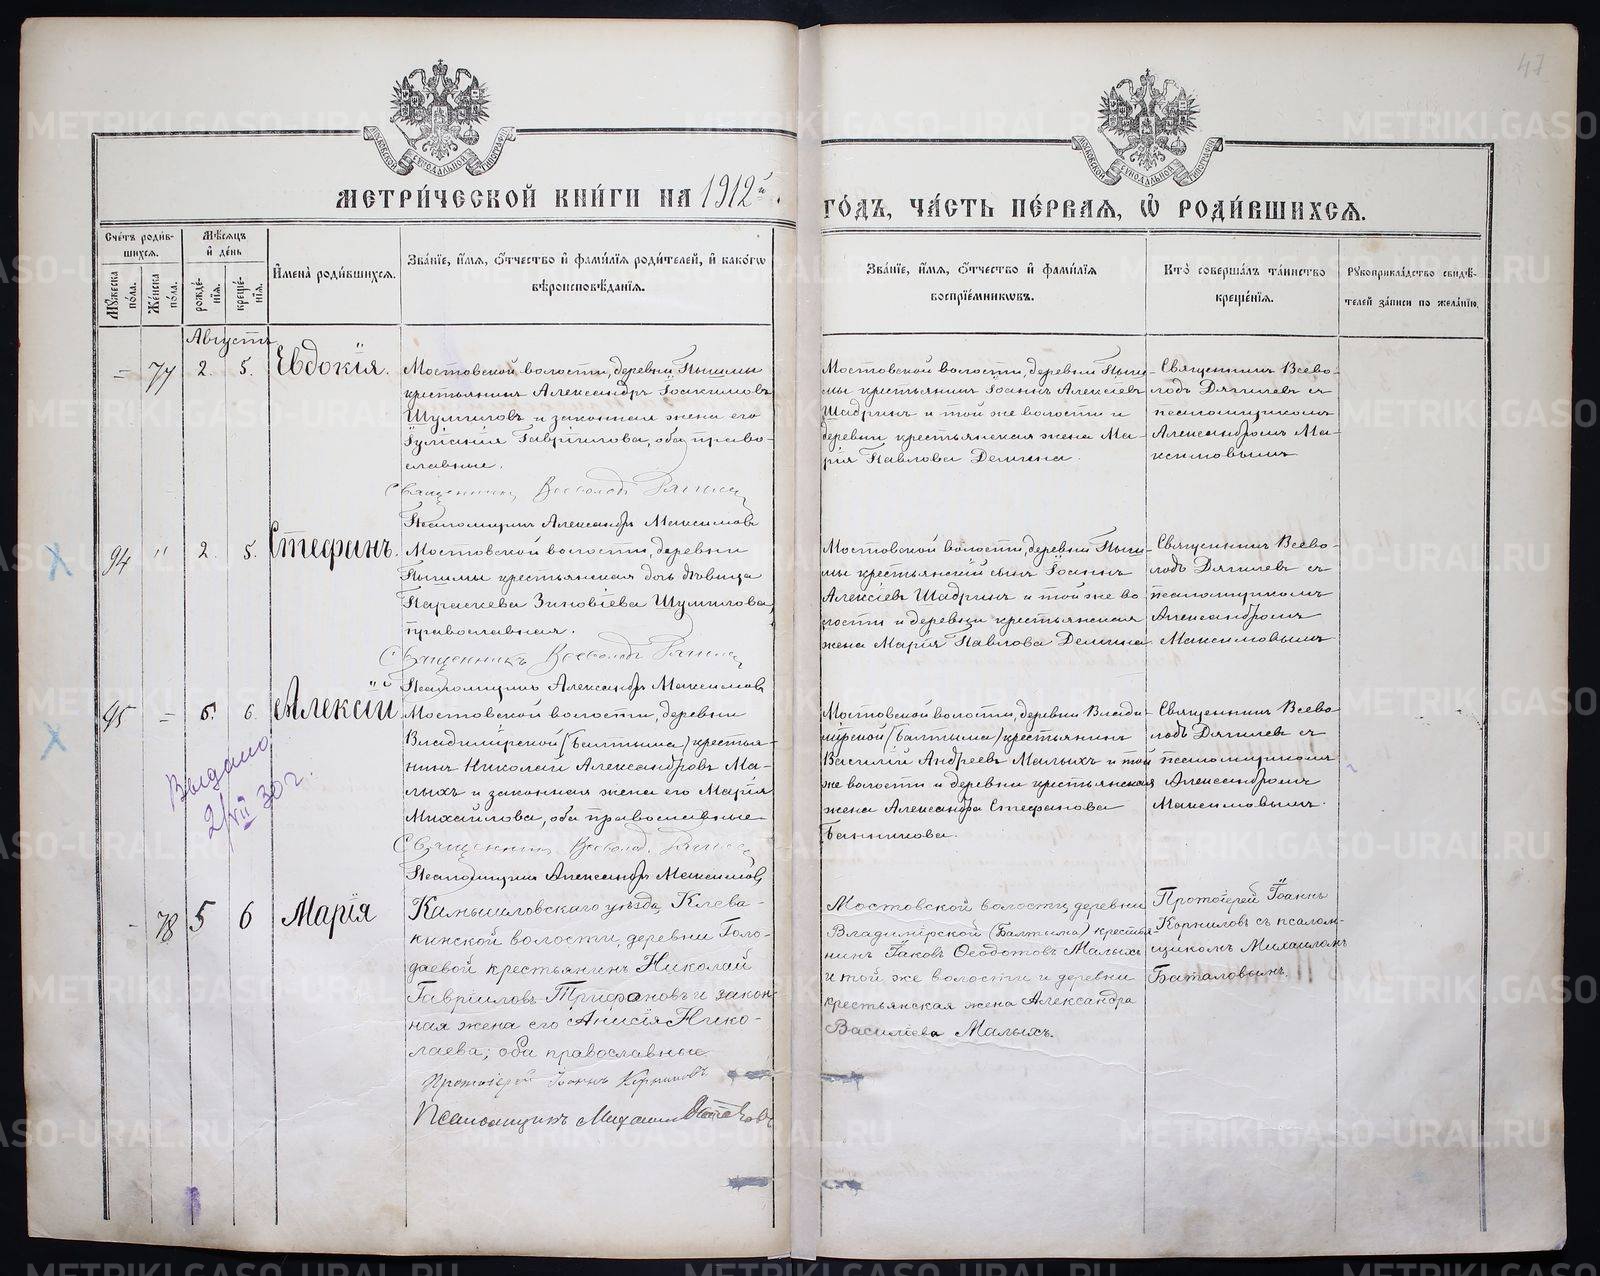 47
МЕТРИ́ЧЕСКОЙ КНИ́ГИ НА 1912й
ГО́ДЪ, ЧА́СТЬ ПЕ́РВАЯ, Ѡ҆ РОДИ́ВШИХСЯ.
Сче́тъ роди́вшихся.
Му́жеска по́ла.
Же́нска по́ла.
Мѣ́сяцъ и҆ де́нь
рожде́нїя.
креще́нїя.
И҆мена̀ роди́вшихся.
Зва́нїе, и҆́мя, ѻ҆́тчество и҆ фами́лїя роди́телей, и҆ како́гѡ
вѣроисповѣ́данїя.
Зва́нїе, и҆́мя, ѻ҆́тчество и҆ фами́лїя
воспрїе́мникѡвъ.
Кто̀ соверша́лъ та́инство
креще́нїя.
Рꙋкоприкла́дство свидѣ́-
телей за́писи по жела́нїю.
Августъ
= 77 2. 5. Евдокія.
Мостовской волости, деревни Пышмы
крестьянинъ Александръ Іоакимовъ
Шумиловъ и законная жена его
Іуліанія Гавріилова, оба право-
славные.
Священникъ Всеволодъ Дягилев
Псаломщикъ Александръ Максимовъ
Мостовской волости, деревни Пыш-
мы крестьянинъ Іоаннъ Алексіевъ
Шадринъ и той же волости и
деревни крестьянская жена Ма-
рія Павлова Демина.
Священникъ Всево-
лодъ Дягилевъ съ
псаломщикомъ
Александромъ Ма-
ксимовымъ
94 " 2. 5. Стефанъ.
Мостовской волости, деревни
Пышмы крестьянская дочь дѣвица
Параскева Зиновіева Шумилова,
православная.
Священникъ Всеволодъ Дягилев
Псаломщикъ Александръ Максимовъ
Мостовской волости, деревни Пыш-
мы крестьянскій сынъ Іоаннъ
Алексіевъ Шадринъ и той же во
лости и деревни крестьянская
жена Марія Павлова Демина
Священникъ Всево-
лодъ Дягилевъ съ
псаломщикомъ
Александромъ
Максимовымъ
95 - 5. 6. Алексій
Мостовской волости, деревни
Владимірской (Балтыма) крестья-
нинъ Николай Александровъ Ма-
лыхъ и законная жена его Марія
Михайлова, оба православные
Священникъ Всеволодъ Дягилев
Псаломщикъ Александръ Максимовъ
Мостовской волости, деревни Влади-
мірской (Балтыма) крестьянинъ
Василій Андреевъ Малыхъ и той
же волости и деревни крестьянская
жена Александра Стефанова
Банникова.
Священникъ Всево
лодъ Дягилевъ съ
псаломщикомъ
Александромъ
Максимовымъ.
Выдано
2/VII 30 г.
- 78 5 6 Марія
Камышловскаго уѣзда, Клева-
кинской волости, деревни Голо-
даевой крестьянинъ Николай
Гавріиловъ Трифановъ и закон-
ная жена его Анисія Нико-
лаева; оба православные.
Протоіерей Іоаннъ Корниловъ
Псаломщикъ Михаилъ Баталовъ
Мостовской волости, деревни
Владимірской (Балтыма) крестья-
нинъ Іаковъ Ѳеодотовъ Малыхъ
и той же волости и деревни
крестьянская жена Александра
Василіева Малыхъ.
Протоіерей Іоаннъ
Корниловъ съ псалом-
щикомъ Михаиломъ
Баталовымъ.
METRIKI.GASO-URAL.RU